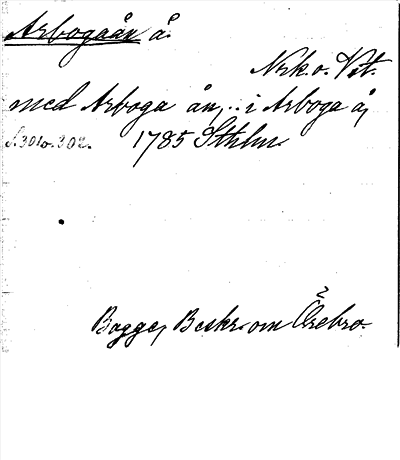 Arbogaån å.
Nrk. o. Vst.
med Arboga ån, .. i Arboga å,
s. 301 o. 302. 1785 Sthlm.
Bagge, Beskr. om Örebro.